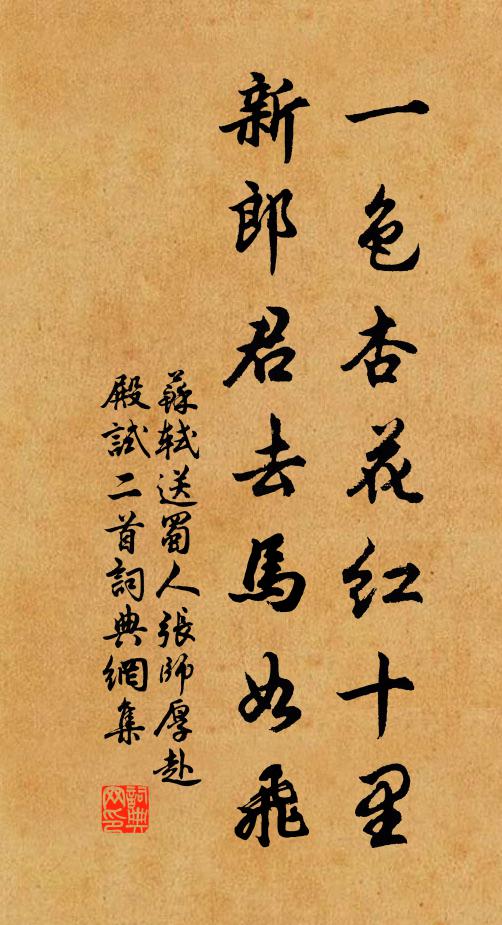 一色杏花紅十里
新郎君去馬如飛
蘇軾送蜀人張師厚赴
殿試二首詞典網集
詞典
网印